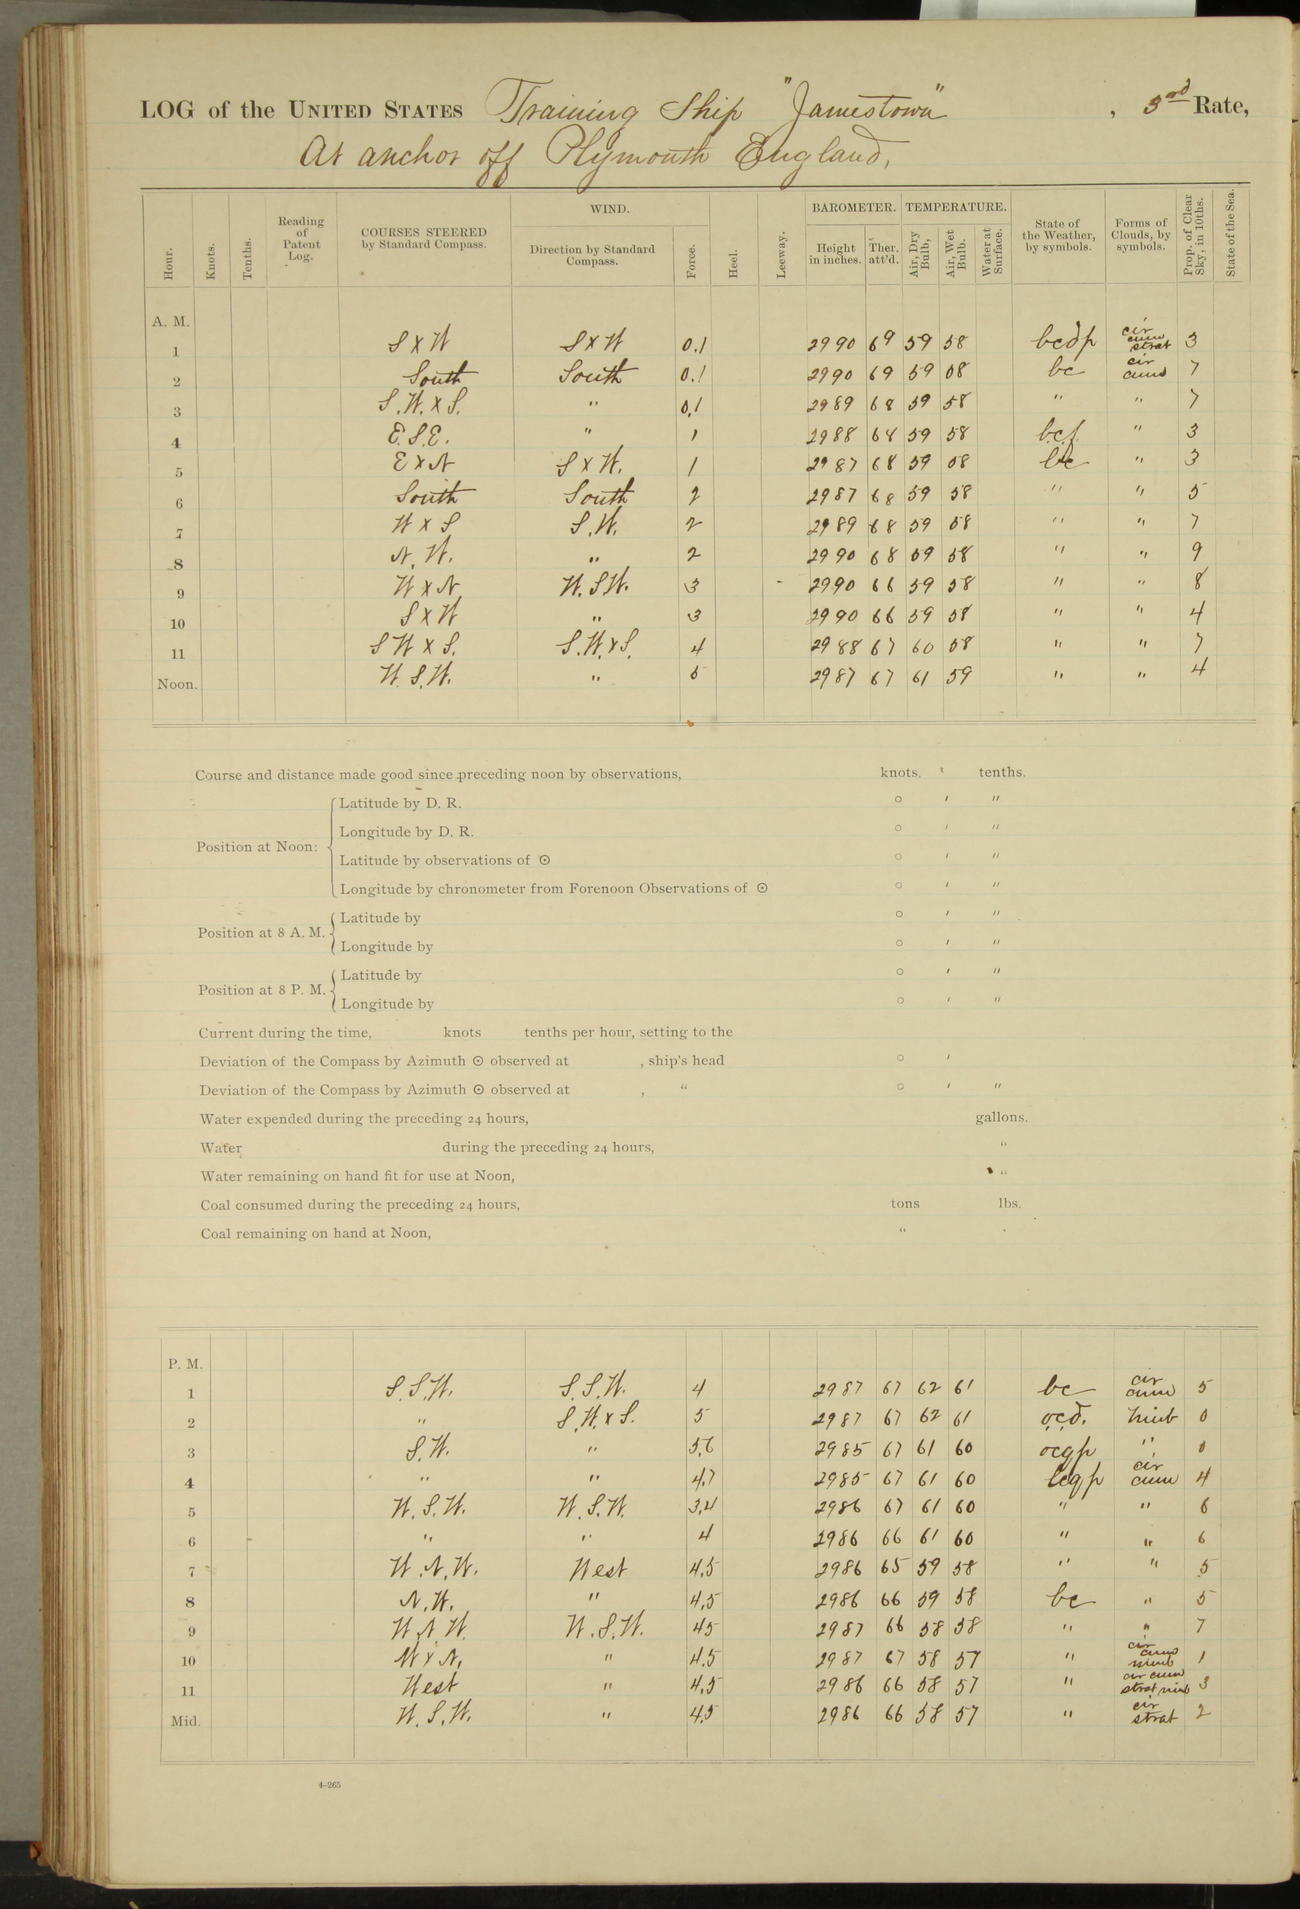 LOG of the UNITED STATES Training Ship "Jamestown", 3rd Rate,
At anchor off Plymouth England,
Hour. Knots. Tenths. Reading of Patent Log. COURSES STEERED by Standard Compass. WIND. Direction by Standard Compass. Force. Heel. Leeway. BAROMETER. Height in inches. Ther. att'd. TEMPERATURE. Air, Dry Bulb, Air, Wet Bulb. Water at Surface. State of the Weather, by symbols. Forms of Clouds, by symbols. Prop. of Clear Sky, in 10ths. State of the Sea.
A. M.
1 S x W S x W 0.1 29 90 69 59 58 bcdp cir cum strat 3
2 South South 0.1 29 90 69 59 58 bc cir cum 7
3 S.W. x S. " 0.1 29 89 68 59 58 " " 7
4 E.S.E. " 1 29 88 68 59 58 bcf. " 3
5 E x N S x W. 1 29 87 68 59 58 bc " 3
6 South South 2 29 87 68 59 58 " " 5
7 W x S S.W. 2 29 89 68 59 58 " " 7
8 N.W. " 2 29 90 68 59 58 " " 9
9 W x N W.S.W. 3 29 90 66 59 58 " " 8
10 S x W " 3 29 90 66 59 58 " " 4
11 S W x S. S.W. x S. 4 29 88 67 60 58 " " 7
Noon. W.S.W. " 5 29 87 67 61 59 " " 4
Course and distance made good since preceding noon by observations, knots. tenths.
Position at Noon: Latitude by D. R. ° ′ ″
Longitude by D. R. ° ′ ″
Latitude by observations of ☉ ° ′ ″
Longitude by chronometer from Forenoon Observations of ☉ ° ′ ″
Position at 8 A. M. Latitude by ° ′ ″
Longitude by ° ′ ″
Position at 8 P. M. Latitude by ° ′ ″
Longitude by ° ′ ″
Current during the time, knots tenths per hour, setting to the
Deviation of the Compass by Azimuth ☉ observed at , ship's head ° ′
Deviation of the Compass by Azimuth ☉ observed at , " ° ′ ″
Water expended during the preceding 24 hours, gallons.
Water during the preceding 24 hours, "
Water remaining on hand fit for use at Noon, "
Coal consumed during the preceding 24 hours, tons lbs.
Coal remaining on hand at Noon, "
P. M.
1 S.S.W. S.S.W. 4 29 87 67 62 61 bc cir cum 5
2 " S.W. x S. 5 29 87 67 62 61 ocd. nimb 0
3 S.W. " 5.6 29 85 67 61 60 ocqp " 0
4 " " 4.7 29 85 67 61 60 bcqp cir cum 4
5 W.S.W. W.S.W. 3.4 29 86 67 61 60 " " 6
6 " " 4 29 86 66 61 60 " " 6
7 W.N.W. West 4.5 29 86 65 59 58 " " 5
8 N.W. " 4.5 29 86 66 59 58 bc " 5
9 W.N.W. W.S.W. 45 29 87 66 58 58 " " 7
10 W x N. " 4.5 29 87 67 58 57 " cir cum nimb 1
11 West " 4.5 29 86 66 58 57 " cir cum strat nimb 3
Mid. W.S.W. " 4.5 29 86 66 58 57 " cir strat 2
4–265